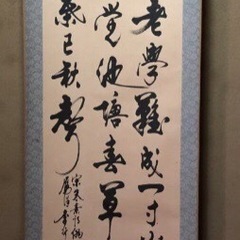 老學難成一寸
覺池塘春草
葉已秋聲
宋朱熹詩